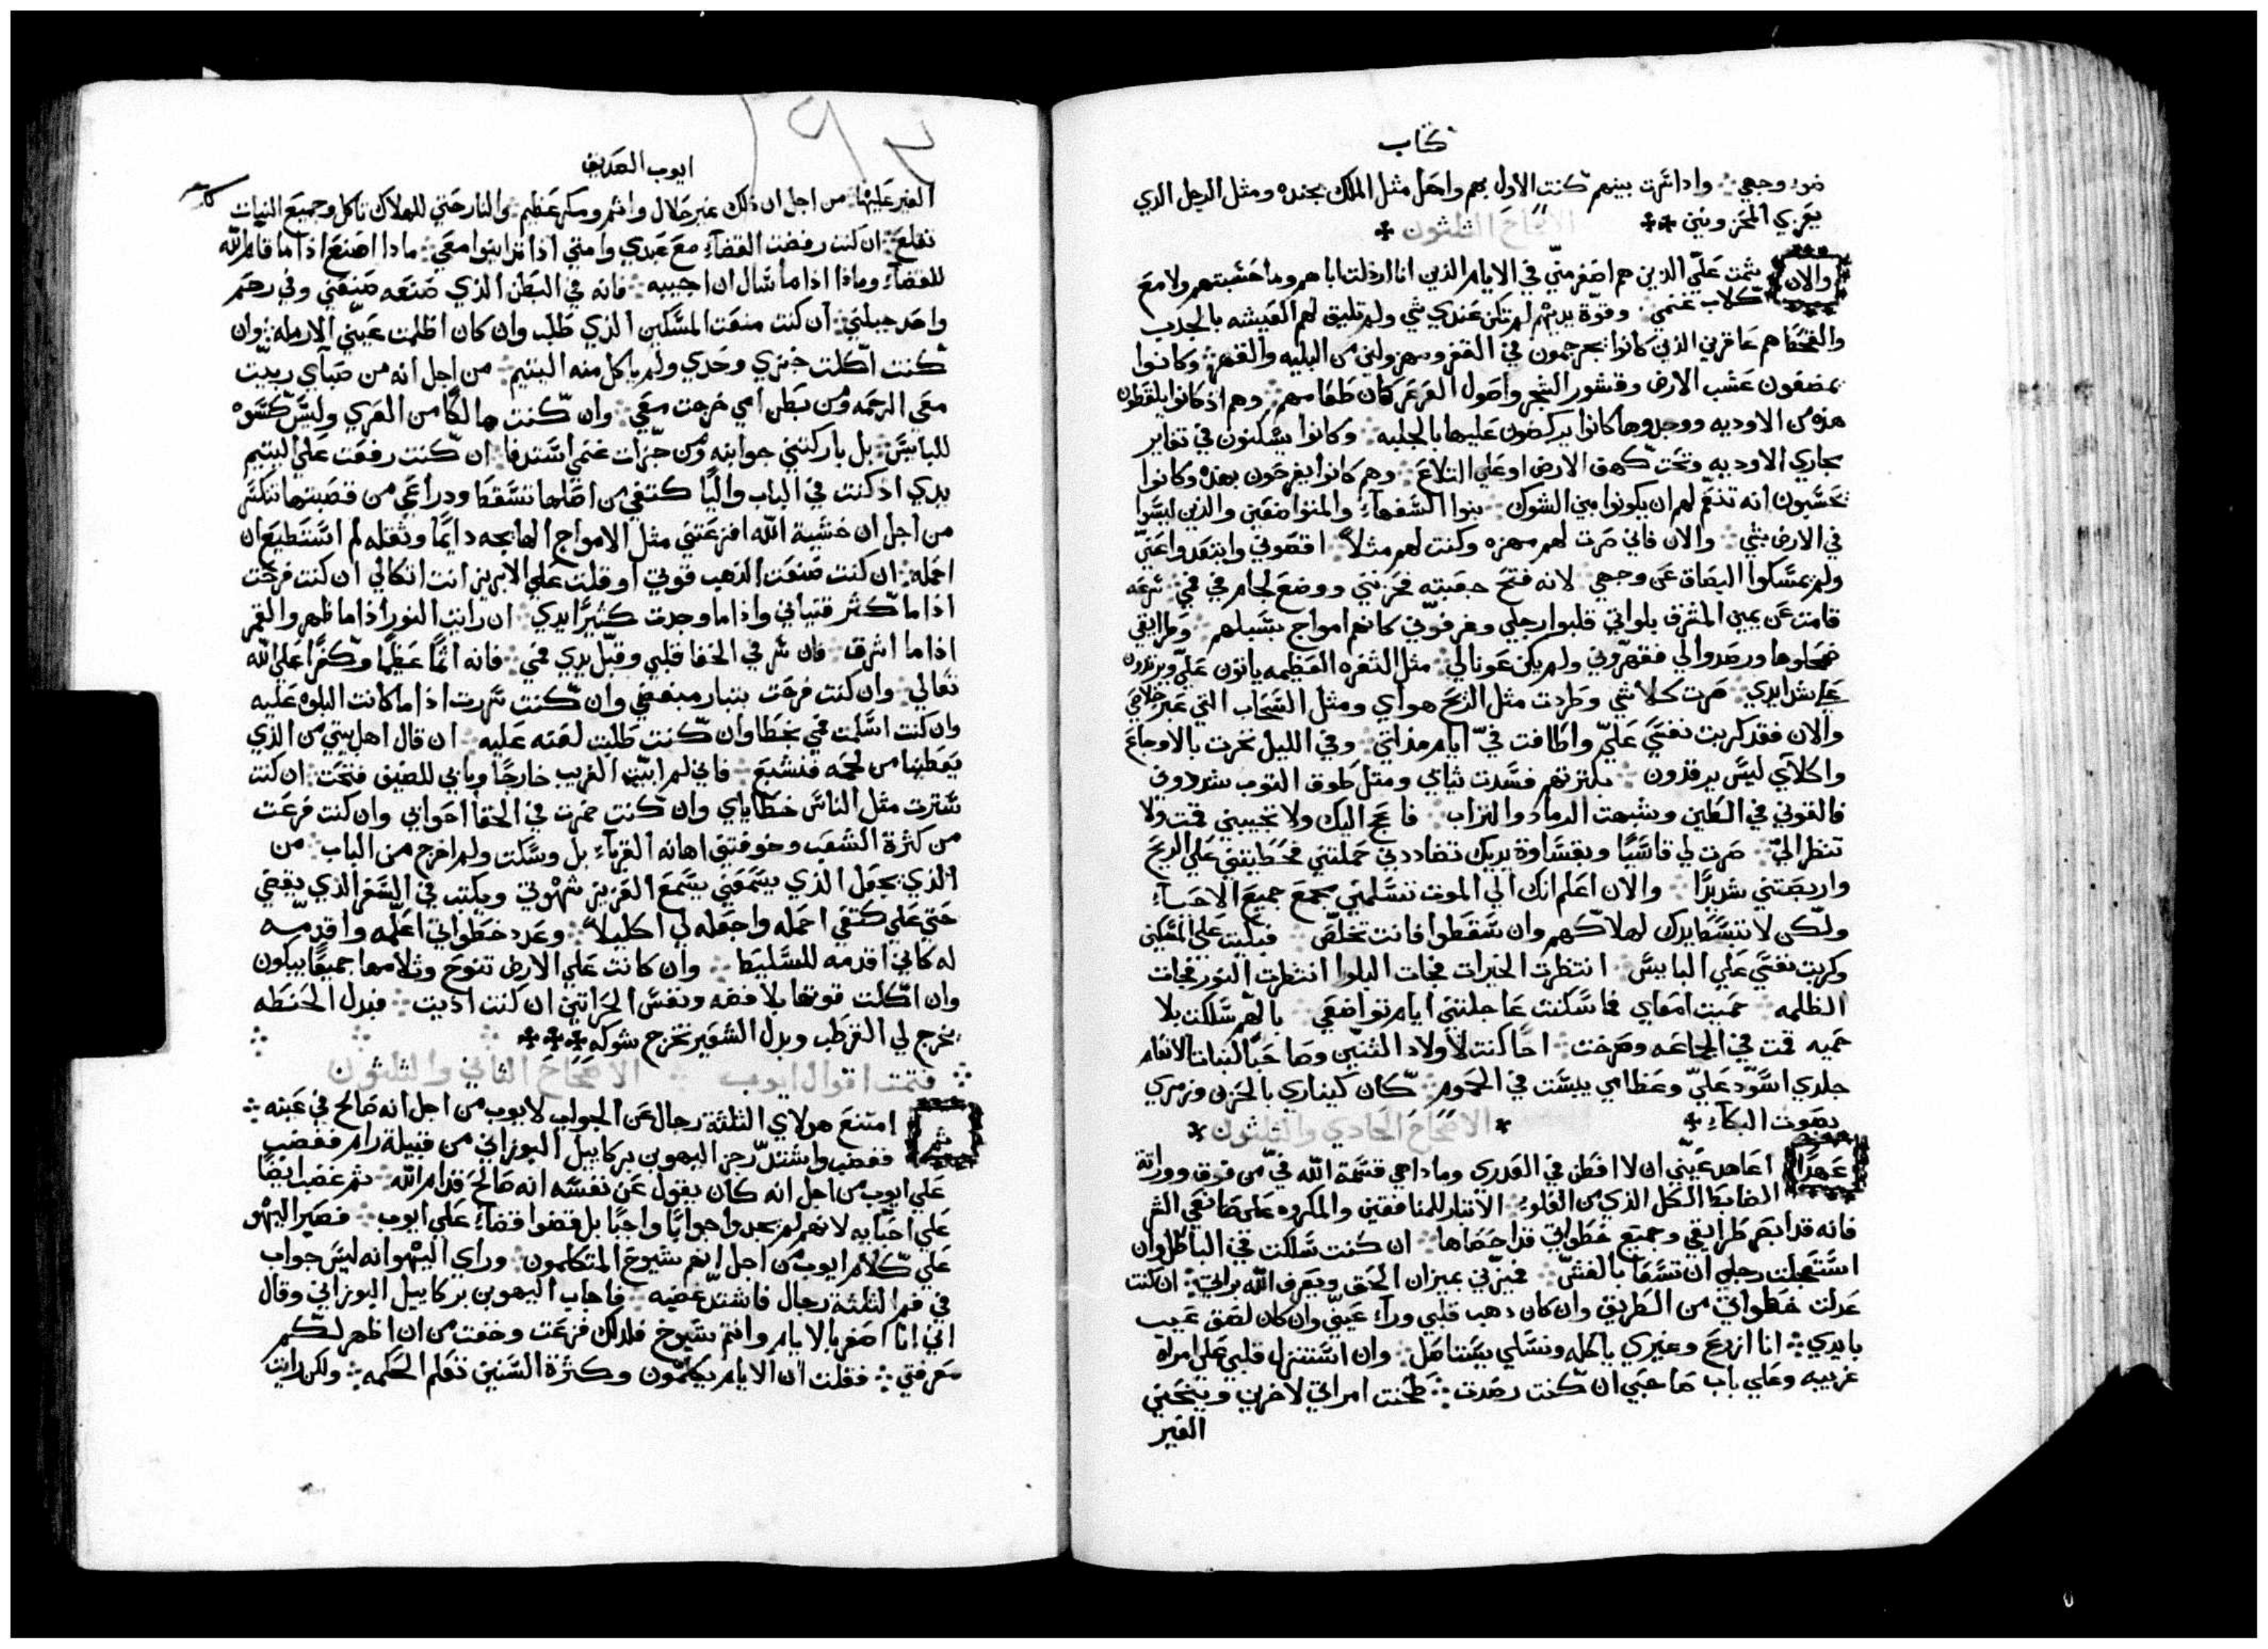 كتاب
ضو وجهي واذا اشرت بينهم كنت الاول بهم واحل مثل الملك بجنده ومثل الرجل الدي
يعزي المحزونين
الاصحاح الثلثون
والان شمت علي الذين هم اصغر مني في الايام الذين انا ارذلت اباهم وما حسبتهم ولا مع
كلاب غنمي وقوة يديهم لم تكن عندي شي ولم تليق لهم العيشه بالجدب
والقحط هم عاقرين الذين كانوا يجرجمون في القفر ومهزولين من البليه والقهر وكانوا
يمضغون عشب الارض وقشور الشجر واصول العرعر كان طعامهم وهم اذ كانوا يلقطون
هذه من الاوديه ووجدوها كانوا يركضون عليها بالجلبه وكانوا يسكنون في تغاير
مجاري الاوديه وتحت كهوف الارض او على التلاع وهم كانوا يفرحون بهذه وكانوا
يحسبون انه تنعم لهم ان يكونوا بين الشوك بنوا السفهاء والمتواضعين والذين ليسوا
في الارض بشي والان فاني صرت لهم مهزه وكنت لهم مثلاً اقصوني وابتعدوا عني
ولم يمسكوا البصاق عن وجهي لانه فتح جعبته فحزنني ووضع لجام في فمي شرعه
قامت عن يمين المشرق بلواتي قلبوا رجلي وغرقوني كانهم امواج بسبلهم وطرايقي
ضحلوها ورصدوا لي فقهروني ولم يكن عونا لي مثل الثغره العظيمه ياتون علي ويزيدون
علي شدايدي صرت كلا شي وطردت مثل الريح هواي ومثل السحاب التي عبر خلاصي
والان فقد كربت نفسي علي واطافت في ايام مذلتي وفي الليل نخرت بالاوجاع
واكلاي ليس يرقدون بكثرتهم فسدت ثيابي ومثل طوق الثوب شددوني
فالقوني في الطين وشبهت الرماد والتراب فاعج اليك ولا تجيبني قمت ولا
تنظر الي صرت لي قاسيًا وبقساوة يديك تضاددني حملتني فحطيتني على الريح
واربضتني شديدًا والان اعلم انك الي الموت تسلمني مجمع جميع الاحياء
ولكن لا تبسط يدك لهلاكهم وان سقطوا فانت تخلص فبكيت على المسكين
وكربت نفسي علي البايس انتظرت الخيرات فجات البلوا انتظرت النور فجات
الظلمه حميت امعاي فما سكنت عاجلتني ايام تواضعي بالهم سلكت بلا
حميه قمت في الجماعه وصرخت اخًا كنت لاولاد التنين وصاحبًا لبنات الانعام
جلدي اسود علي وعظامي يبست في الحموم كان كيناري بالحزن وزمري
بصوت البكاء
الاصحاح الحادي والثلثون
عهدًا اعاهد عيني ان لا افطن في العدري وماذا هي قسمة الله في من فوق ووراثة
الضابط الكل الذي من العلو الانتار للمنافقين والمكروه على صانعي الشر
فانه قد ابصر طرايقي وجميع خطواتي قد احصاها ان كنت سلكت في الباطل وان
استعجلت رجلي ان تسعا بالغش فيزني بميزان الحق ويعرف الله براتي ان كنت
عدلت خطواتي من الطريق وان كان ذهب قلبي وراء عيني وان كان لصق عيب
بايدي انا ازرع وغيري ياكله ونسلي يستاصل وان استنزل قلبي على امراه
غريبه وعلي باب صاحبي ان كنت رصدت طحنت امراتي لاخرين وينحني
الغير
ايوب الصديق
الغير عليها من اجل ان ذلك غير حلال واثم ومكر عظيم والنار حتي للهلاك تاكل وجميع النبات
تقلع ان كنت رفضت القضاء مع عبدي وامتي اذا تراينوا معي ماذا اصنع اذا ما قام الله
للقضاء وماذا اذا ما سال ان اجيبه فانه في البطن الذي صنعه صنعني وفي رحم
واحد جبلني ان كنت منعت المسكين الذي طلب وان كان اظلمت عيني الارمله وان
كنت اكلت خبزي وحدي ولم ياكل منه اليتيم من اجل انه من صباي ربيت
معي الرحمه ومن بطن امي خرجت معي وان كنت هالكًا من العري وليس كسوه
للبايس بل باركتني جوانبه ومن جزات غنمي استدفا ان كنت رفعت على اليتيم
يدي اذ كنت في الباب واليًا كتفي من اصلها تسقط ودراعي من قصبتها تنكسر
من اجل ان خشية الله افزعتني مثل الامواج الهايجه دايمًا وثقله لم استطيع ان
احمله ان كنت صنعت الذهب قوتي او قلت علي الابريز انت اتكالي ان كنت فرحت
اذا ما كثر قتياني واذا ما وجدت كثيرًا يدي ان رايت النور اذا ما ظهر والقمر
اذا ما اشرق فان سر في الخفا قلبي وقبل يدي فمي فانه اثمًا عظيمًا وكفرًا على الله
تعالي وان كنت فرحت بتبار مبغضي وان كنت سررت اذا ما كانت البلوه عليه
وان كنت اسلمت فمي بخطا وان كنت طلبت لعنه عليه ان قال اهل بيتي من الذي
يعطنا من لحمه فنشبع فاني لم ابيت الغريب خارجًا وبابي للضيف فتحت ان كنت
سترت مثل الناس خطاياي وان كنت خمرت في الخفا احواتي وان كنت فزعت
من كثرة الشعب وخوفتني اهانه القرباء بل وسكت ولم اخرج من الباب من
الذي يجعل الذي يسمعني يسمع العزيز شهوتي ويكتب في السفر الذي يقضي
حتي علي كتفي احمله واجعله لي اكليلاً وعدد خطواتي اعلمه واقدمه
له كاني اقدمه للسليط وان كانت علي الارض تنوح وثلامها جميعًا يبكون
وان اكلت قوتها بلا فضه ونفس الحراثين ان كنت اذيت فبدل الحنطه
يخرج لي القرطب وبدل الشعير يخرج شوكه
فتمت اقوال ايوب الاصحاح الثاني والثلثون
ثم امتنع هولاي الثلثة رجال عن الجواب لايوب من اجل انه صالح في عينه
فغضب واشتد رجز اليهو بن بركاييل البوزاني من قبيلة رام فغضب
علي ايوب من اجل انه كان يقول عن نفسه انه صالح قدام الله ثم غضب ايضًا
علي احبايه لانهم لم يجدوا جوابًا واجبًا بل قضوا قضاء علي ايوب فصبر اليهو
علي كلام ايوب من اجل انهم شيوخ المتكلمون وراي اليهو انه ليس جواب
في فم الثلثة رجال فاشتد غضبه فاجاب اليهو بن بركاييل البوزاني وقال
اني انا اصغر بالايام وانتم شيوخ فلذلك فزعت وخفت من ان اظهر لكم
معرفتي فقلت ان الايام يكلمون وكثرة السنين تعلم الحكمه ولكن رايت